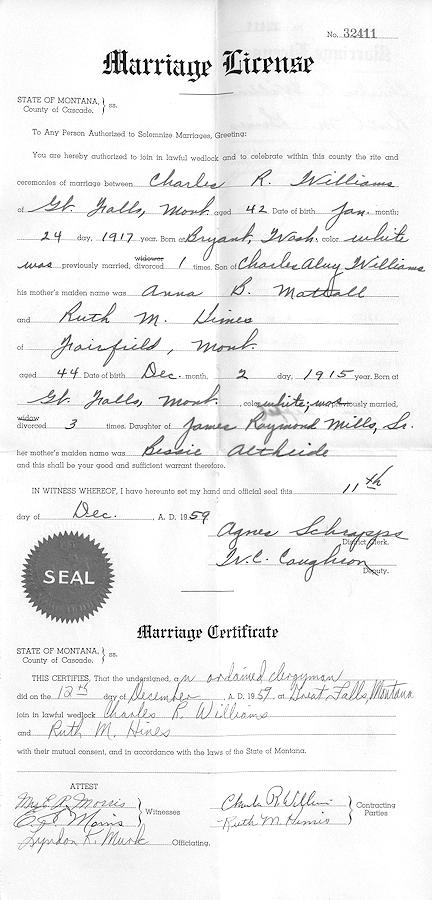 No. 32411
Marriage License
STATE OF MONTANA, } ss.
County of Cascade.
To Any Person Authorized to Solemnize Marriages, Greeting:
You are hereby authorized to join in lawful wedlock and to celebrate within this county the rite and
ceremonies of marriage between Charles R. Williams
of Gt. Falls, Mont. aged 42 Date of birth Jan. month;
24 day, 1917 year. Born at Bryant, Wash. color white
was previously married, widower divorced 1 times. Son of Charles Alvy Williams
his mother's maiden name was Anna B. Mattall
and Ruth M. Himes
of Fairfield, Mont.
aged 44 Date of birth Dec. month, 2 day, 1915 year. Born at
Gt. Falls, Mont. , color white; was previously married,
widow divorced 3 times. Daughter of James Raymond Mills, Sr.
her mother's maiden name was Bessie Altheide
and this shall be your good and sufficient warrant therefore.
IN WITNESS WHEREOF, I have hereunto set my hand and official seal this 11th
day of Dec. , A. D. 1959
Agnes Schrapps
District Clerk.
W. C. Caughron
Deputy.
SEAL
Marriage Certificate
STATE OF MONTANA, } ss.
County of Cascade.
THIS CERTIFIES, That the undersigned, a n ordained clergyman
did on the 12th day of December A. D. 1959. at Great Falls, Montana
join in lawful wedlock Charles R. Williams
and Ruth M. Hines
with their mutual consent, and in accordance with the laws of the State of Montana.
ATTEST
E. R. Morris
Morris
Witnesses
Lyndon K. Murk Officiating.
Charles R. Williams
Ruth M. Himes
Contracting
Parties